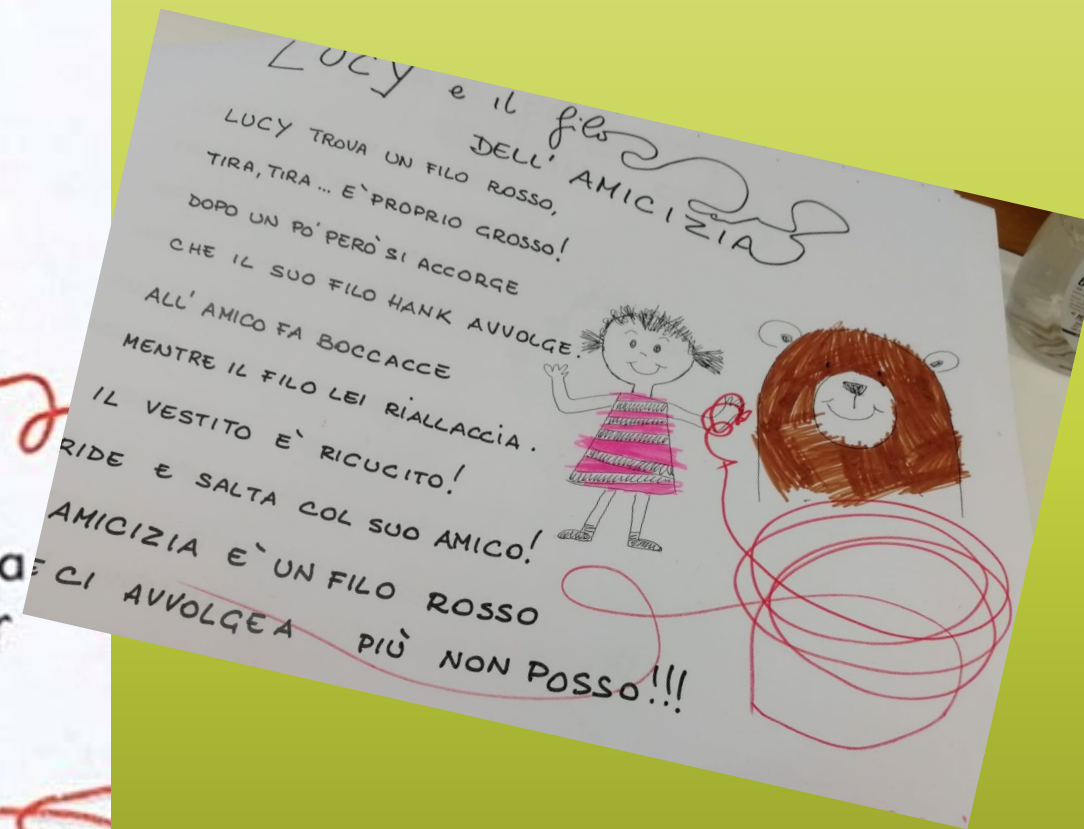 LUCY e il filo
DELL' AMICIZIA
LUCY TROVA UN FILO ROSSO,
TIRA, TIRA... E` PROPRIO GROSSO!
DOPO UN PO' PERO` SI ACCORGE
CHE IL SUO FILO HANK AVVOLGE.
ALL' AMICO FA BOCCACCE
MENTRE IL FILO LEI RIALLACCIA.
IL VESTITO E` RICUCITO!
RIDE E SALTA COL SUO AMICO!
AMICIZIA E` UN FILO ROSSO
E CI AVVOLGE A PIÙ NON POSSO!!!
a